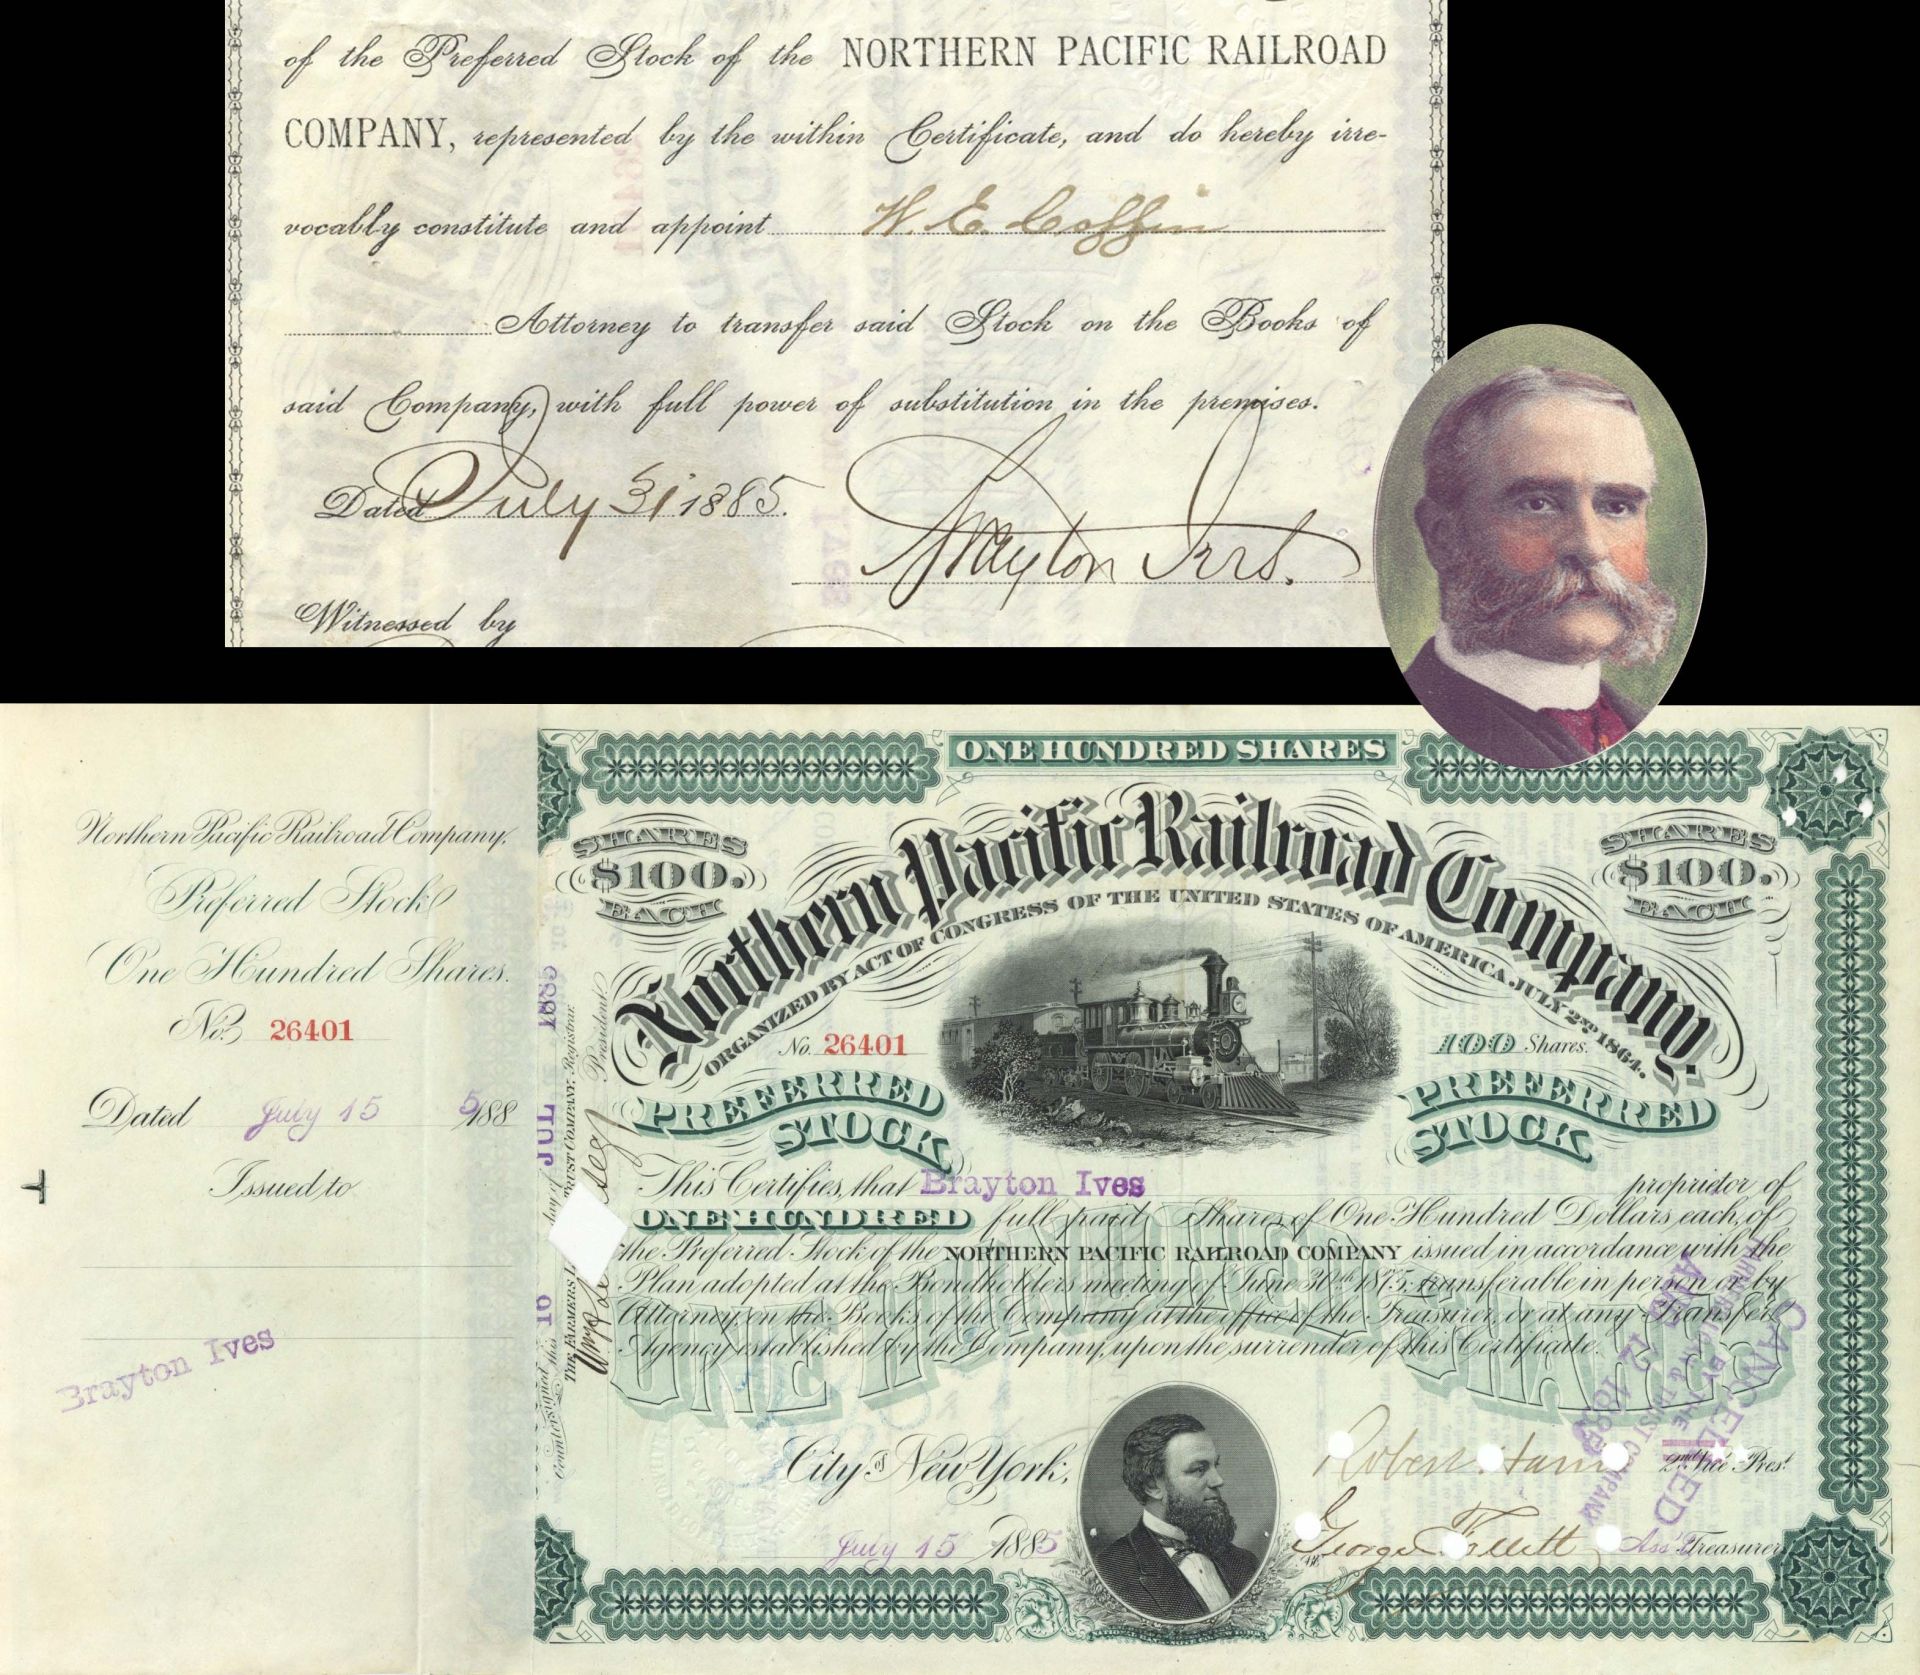 of the Preferred Stock of the NORTHERN PACIFIC RAILROAD
COMPANY, represented by the within Certificate, and do hereby irre-
vocably constitute and appoint W. E. Coffin
Attorney to transfer said Stock on the Books of
said Company, with full power of substitution in the premises.
Dated July 31 1885. Brayton Ives.
Witnessed by
Northern Pacific Railroad Company.
Preferred Stock
One Hundred Shares.
No. 26401
Dated July 15 5 188
Issued to
Brayton Ives
Countersigned this 10 day of JUL 1885
THE FARMERS TRUST COMPANY, Registrar.
President
ONE HUNDRED SHARES
SHARES
$100.
EACH
SHARES
$100.
EACH
Northern Pacific Railroad Company.
ORGANIZED BY ACT OF CONGRESS OF THE UNITED STATES OF AMERICA, JULY 2ND 1864.
No. 26401
100 Shares.
PREFERRED STOCK
PREFERRED STOCK
This Certifies, that Brayton Ives proprietor of
ONE HUNDRED full paid Shares of One Hundred Dollars each, of
the Preferred Stock of the NORTHERN PACIFIC RAILROAD COMPANY issued in accordance with the
Plan adopted at the Bondholders meeting of June 30th 1875, transferable in person or by
Attorney, on the Books of the Company at the office of the Treasurer, or at any Transfer
Agency established by the Company, upon the surrender of this Certificate.
ONE HUNDRED SHARES
CANCELLED
BY THE
FARMERS LOAN & TRUST COMPANY
City of New York,
July 15 1885
Robert Harris 2nd Vice Prest.
George Follett Ass't Treasurer